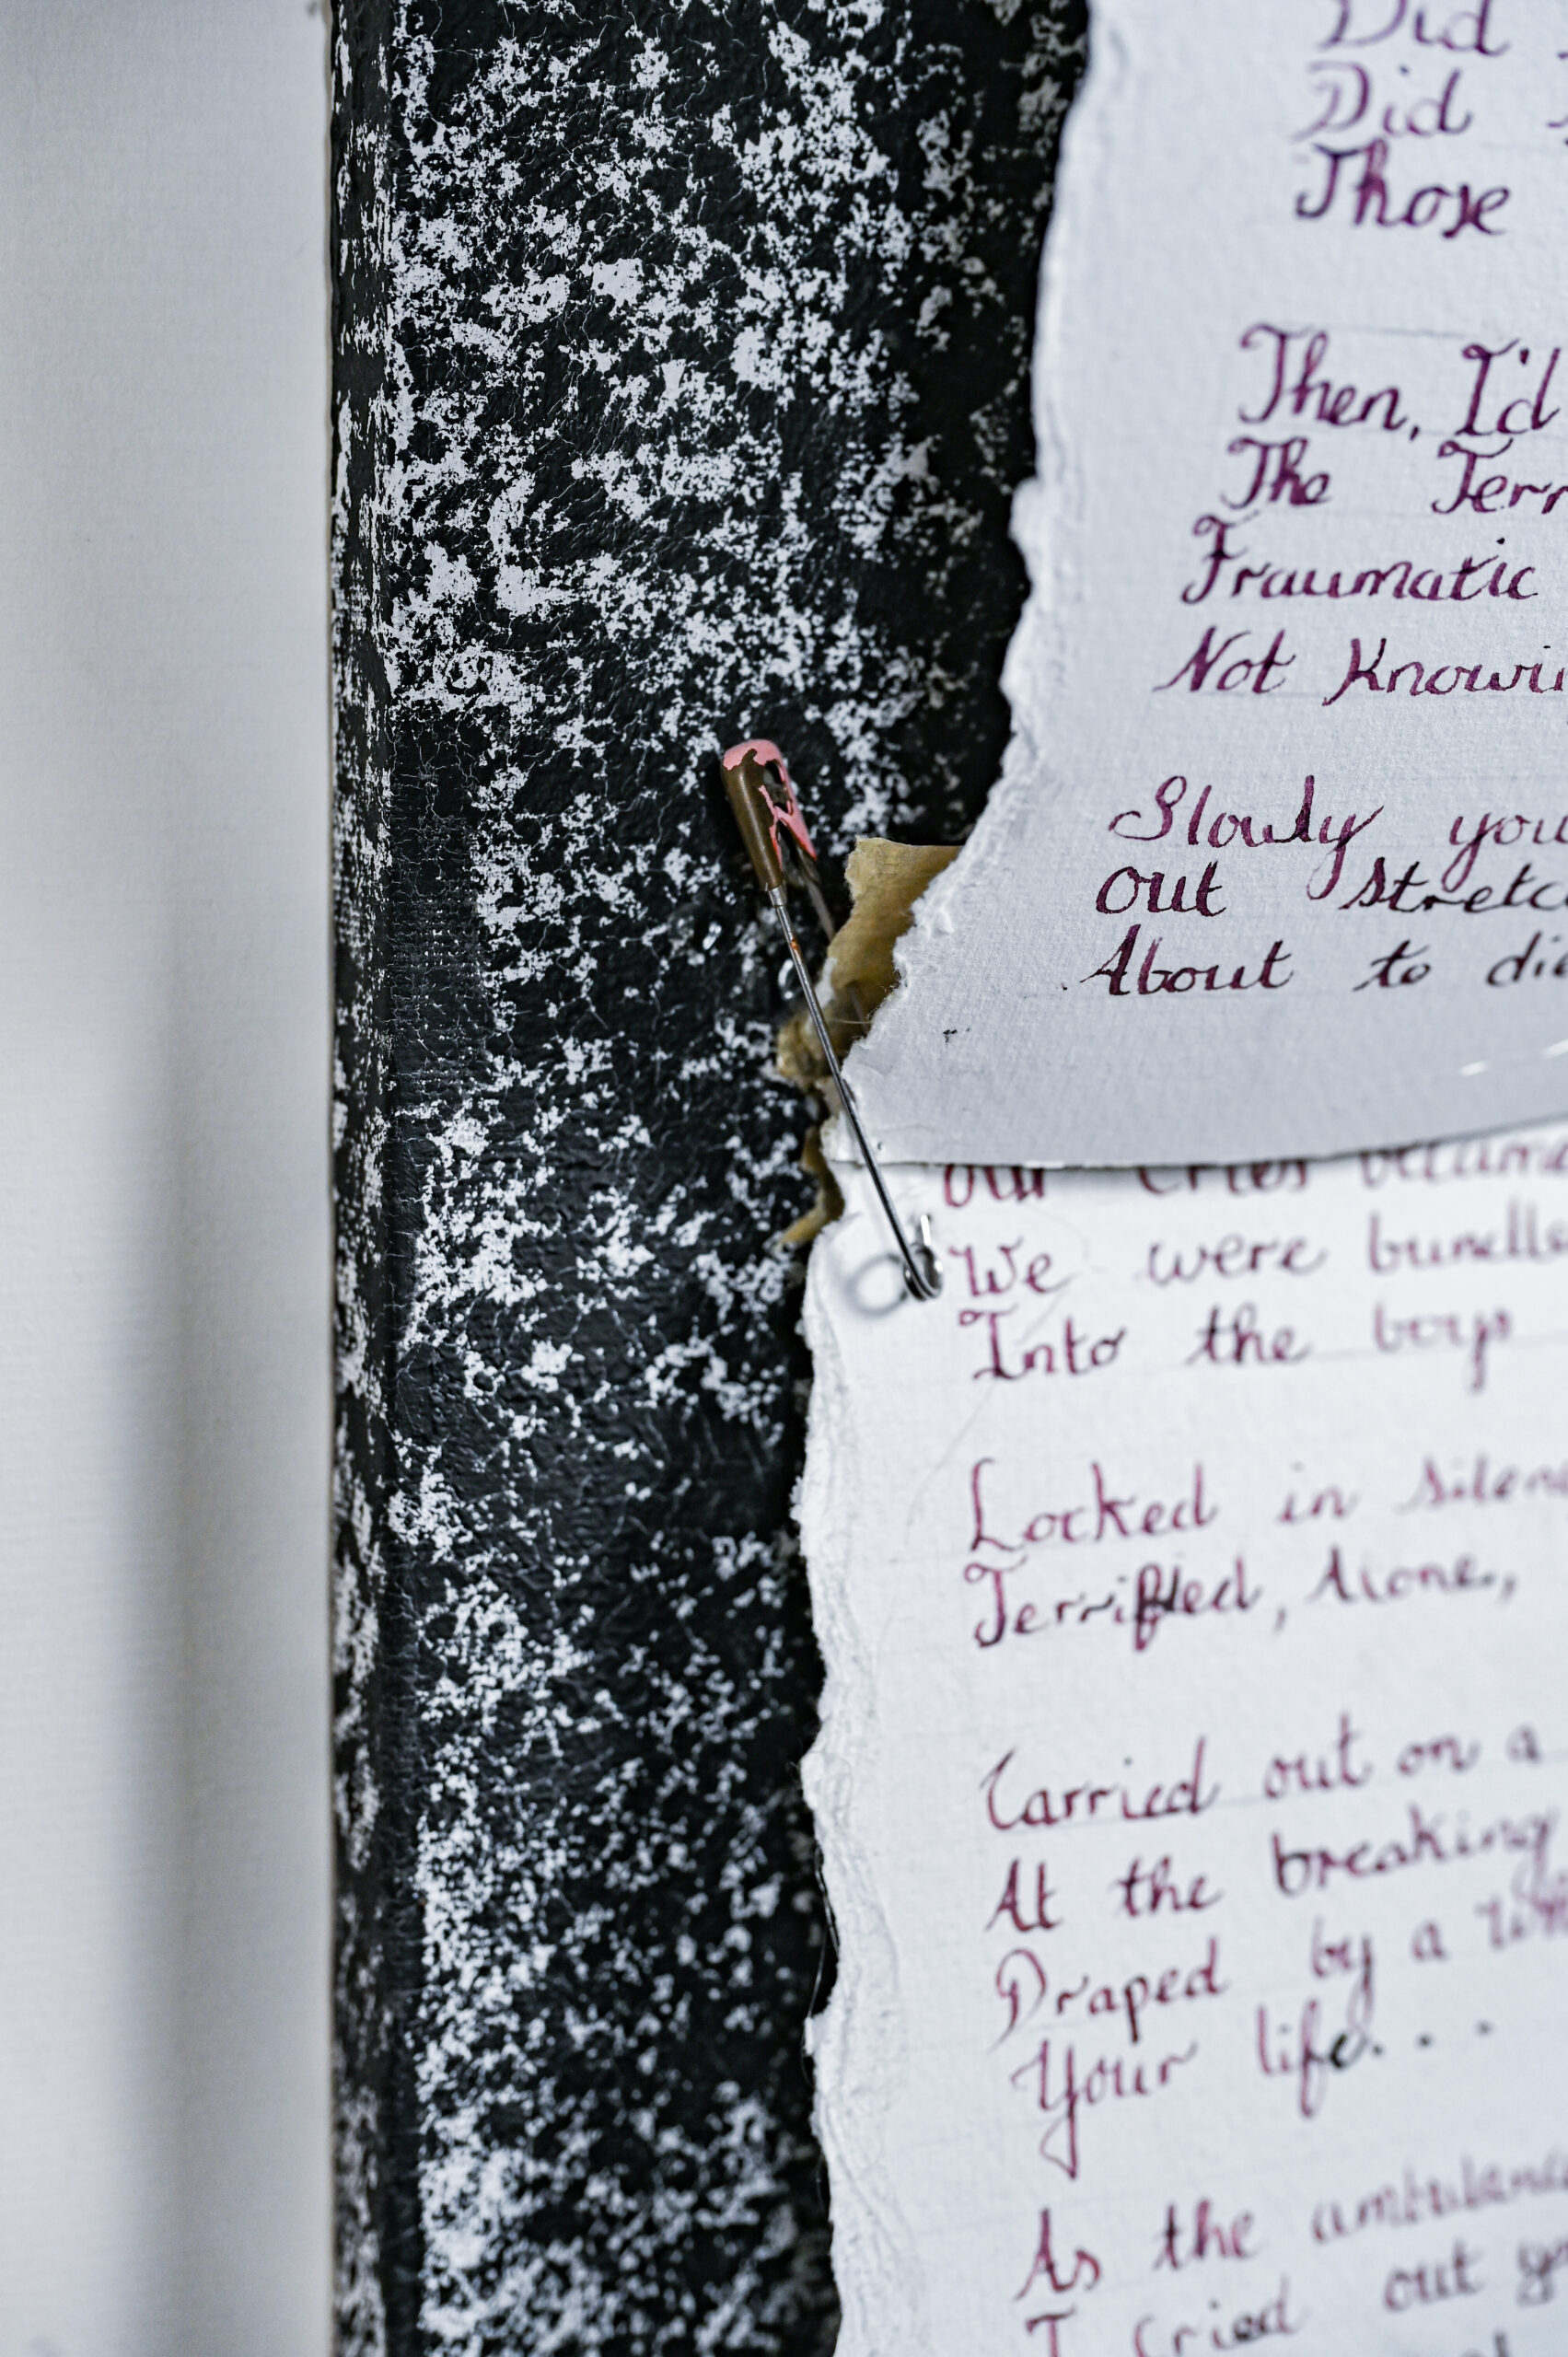 Did
Did
Those
Then, I'd
The Terr
Traumatic
Not Knowi
Slowly you
out stretc
About to die
our cries became
We were bundle
Into the boys
Locked in silen
Terrified, Alone,
Carried out on a
At the breaking
Draped by a whi
Your life...
As the ambulanc
I cried out yo